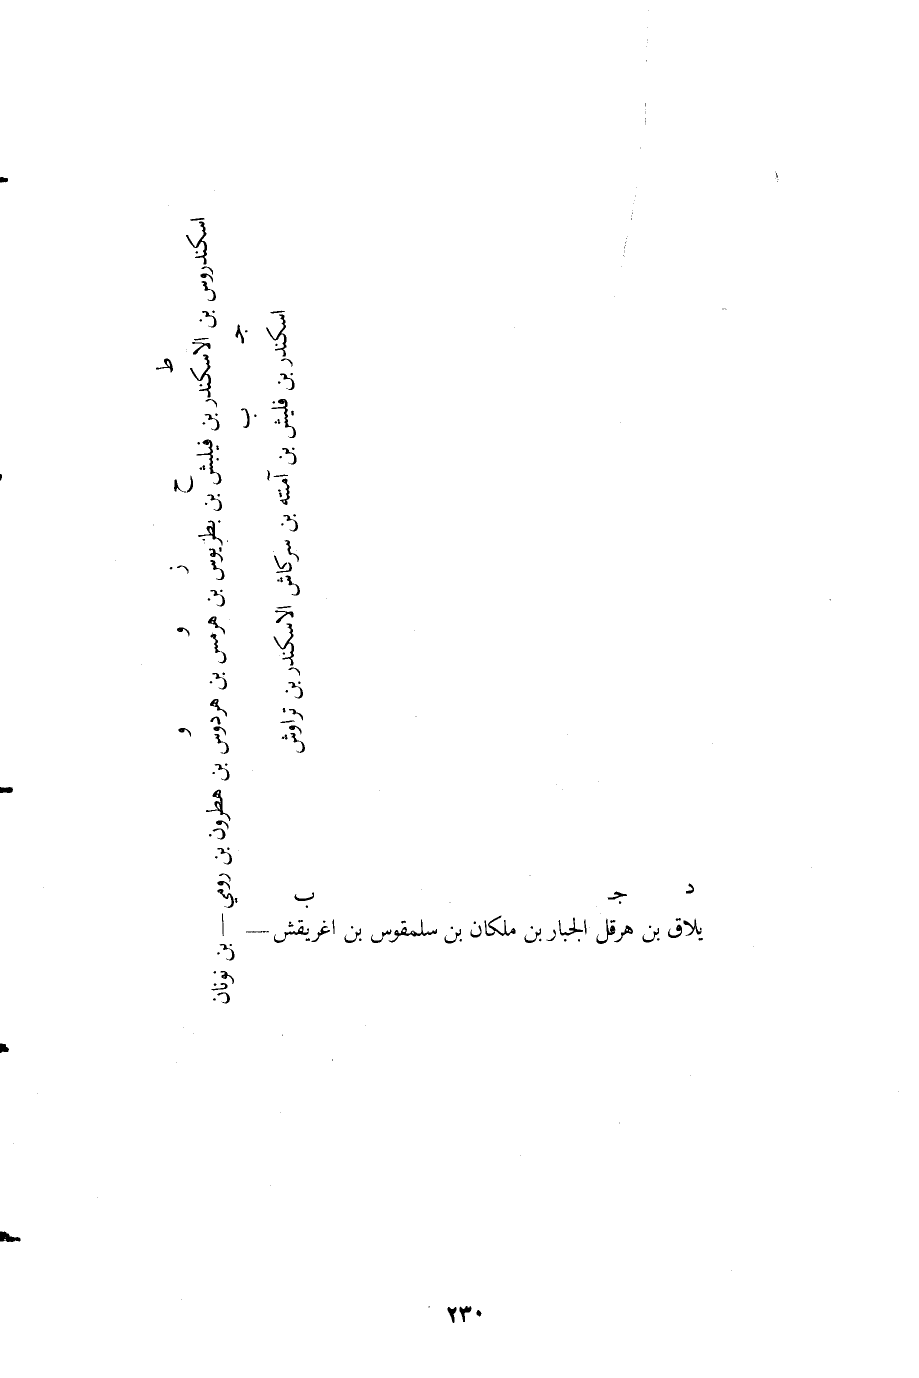 ط ح ز و و
اسكندروس بن الاسكندر بن فيلبش بن بطريوس بن هرمس بن هردوس بن هطرون بن رومي — بن نونان
جـ ب
اسكندر بن فليش بن آمنته بن سركاش الاسكندر بن تراوش
د جـ ب
يلاق بن هرقل الجبار بن ملكان بن سلمقوس بن اغريقش —
٢٣٠